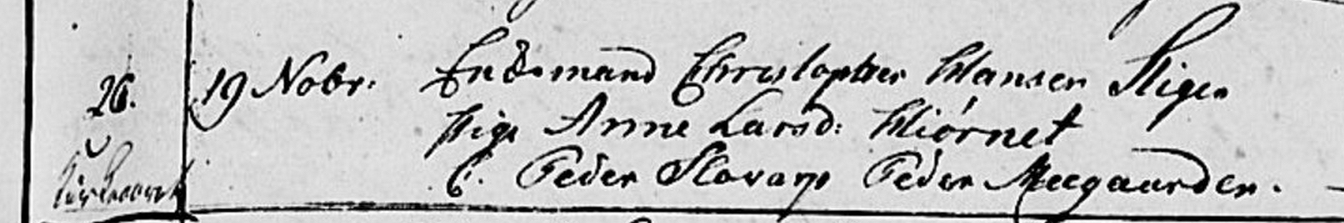 26. 19 Nobr. Enkemand Christopher Hansen Stige
Pige Anne Larsd: Hiørnet
C. Peder Slovarp Peder Meegaarden.